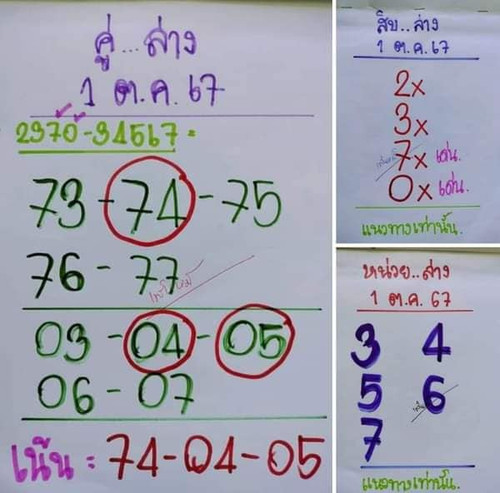 คู่...ล่าง
1 ต.ค. 67
2370-34567=
73-74-75
76-77
03-04-05
06-07
เน้น = 74-04-05
สิบ..ล่าง
1 ต.ค. 67
2x
3x
7x เด่น.
0x เด่น.
แนวทางเท่านั้น.
หน่วย..ล่าง
1 ต.ค. 67
3 4
5 6
7
แนวทางเท่านั้น.